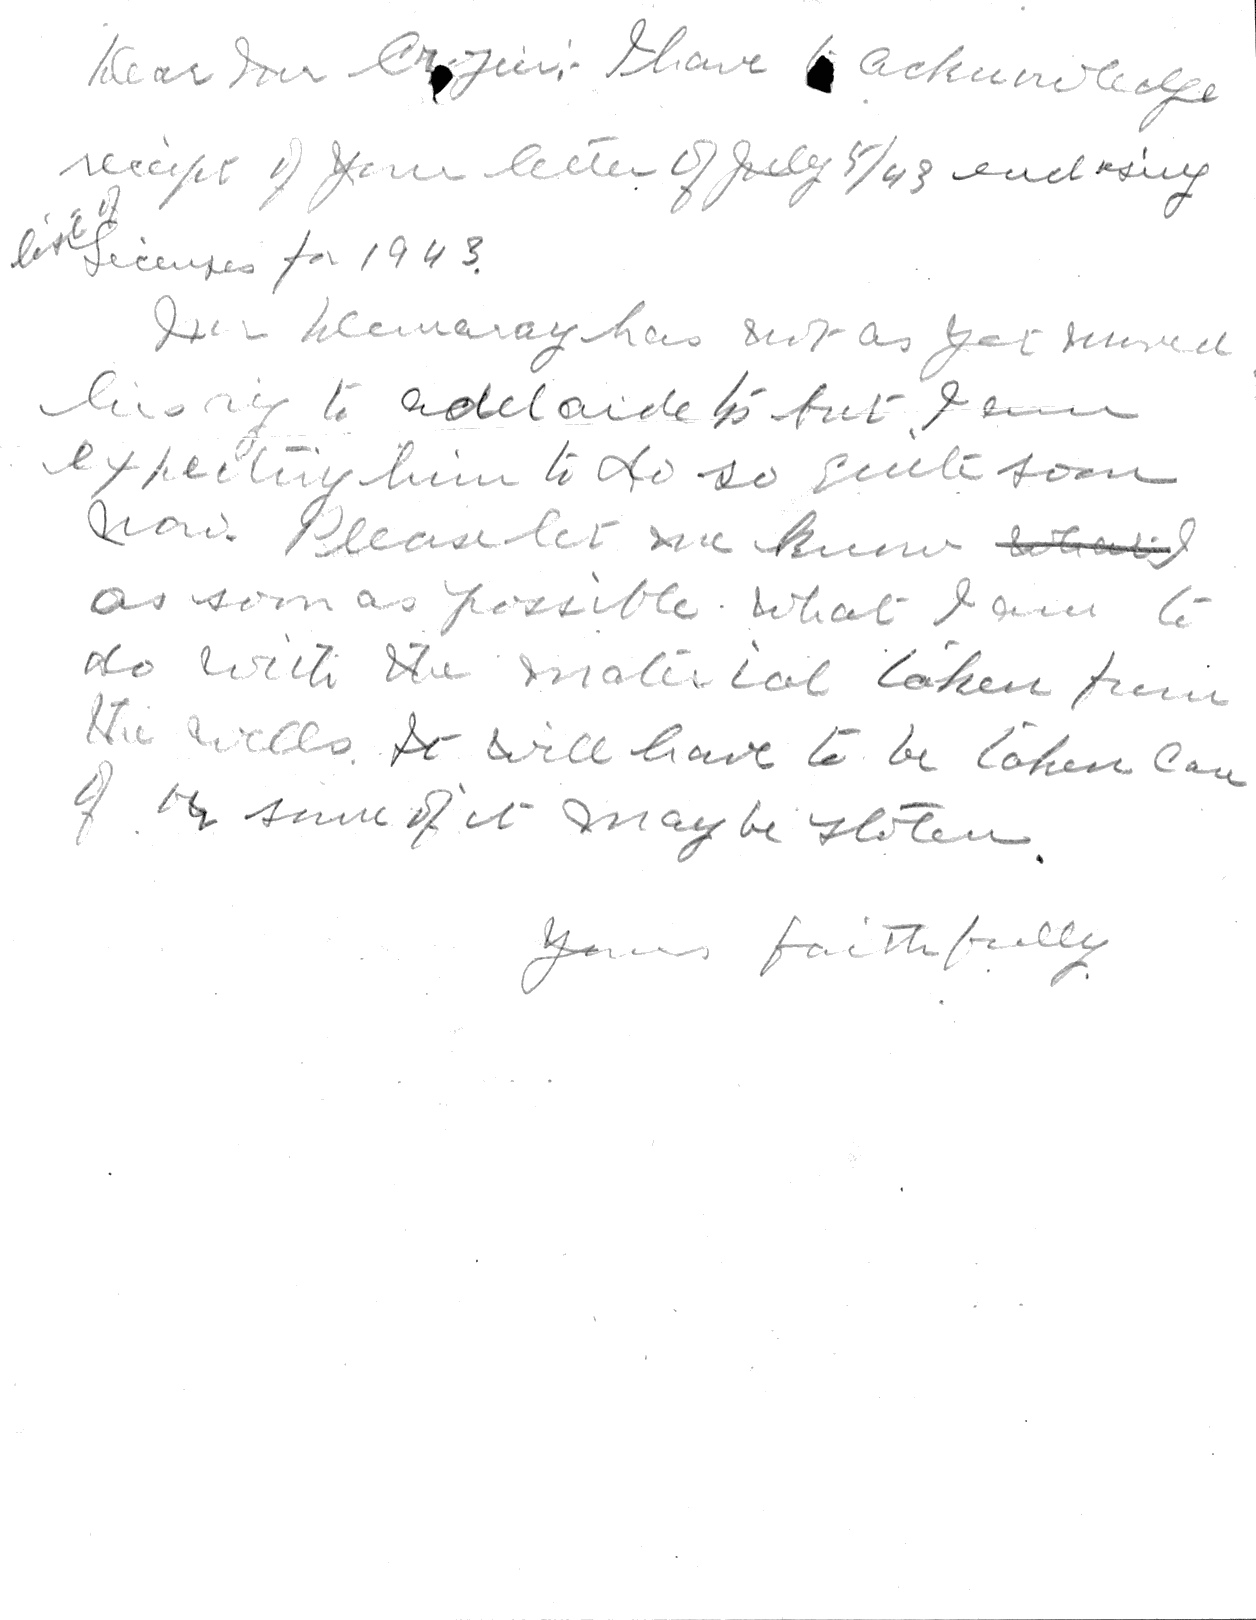 Dear Mr Crozier:- I have to acknowledge
receipt of your letter of July 5/43 enclosing
list of Licenses for 1943.
Mr Demaray has not as yet moved
his rig to adelaide but I am
expecting him to do so quite soon
now. Please let me know what I
as soon as possible what I am to
do with the material taken from
the wells. It will have to be taken care
of or some of it may be stolen.
Yours faithfully